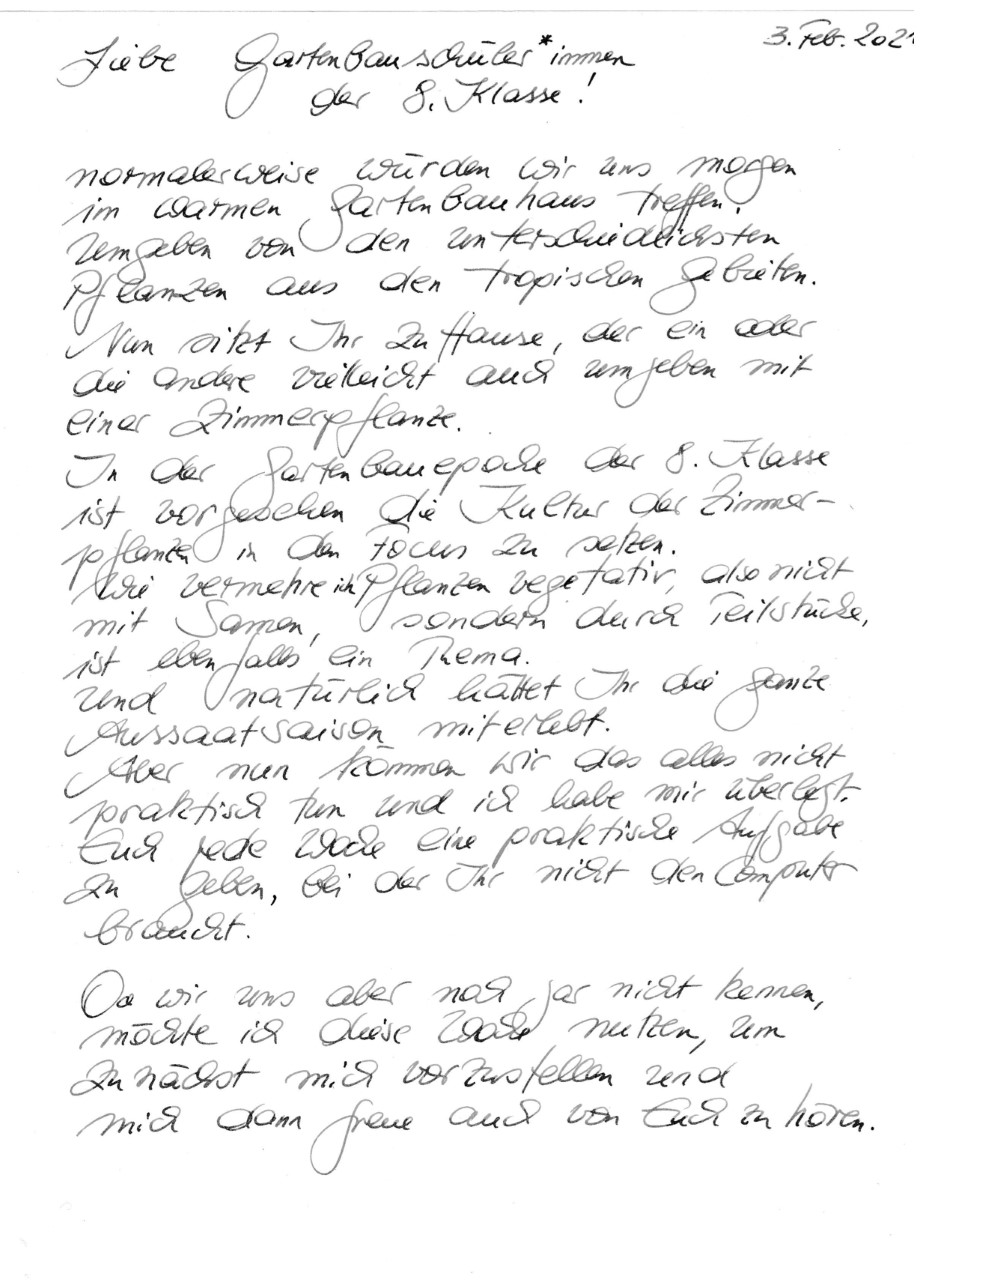 3. Feb. 2021
Liebe Gartenbauschüler*innen
der 8. Klasse!
normalerweise würden wir uns morgen
im warmen Gartenbauhaus treffen.
Umgeben von den unterschiedlichsten
Pflanzen aus den tropischen Gebieten.
Nun sitzt Ihr zu Hause, der ein oder
die andere vielleicht auch umgeben mit
einer Zimmerpflanze.
In der Gartenbauepoche der 8. Klasse
ist vorgesehen die Kultur der Zimmer-
pflanze in den Focus zu setzen.
Wie vermehre ich Pflanzen vegetativ, also nicht
mit Samen, sondern durch Teilstücke,
ist ebenfalls ein Thema.
Und natürlich hättet Ihr die ganze
Aussaatsaison miterlebt.
Aber nun können wir das alles nicht
praktisch tun und ich habe mir überlegt.
Euch jede Woche eine praktische Aufgabe
zu geben, bei der Ihr nicht den Computer
braucht.
Da wir uns aber noch gar nicht kennen,
möchte ich diese Woche nutzen, um
zunächst mich vorzustellen und
mich dann freue auch von Euch zu hören.